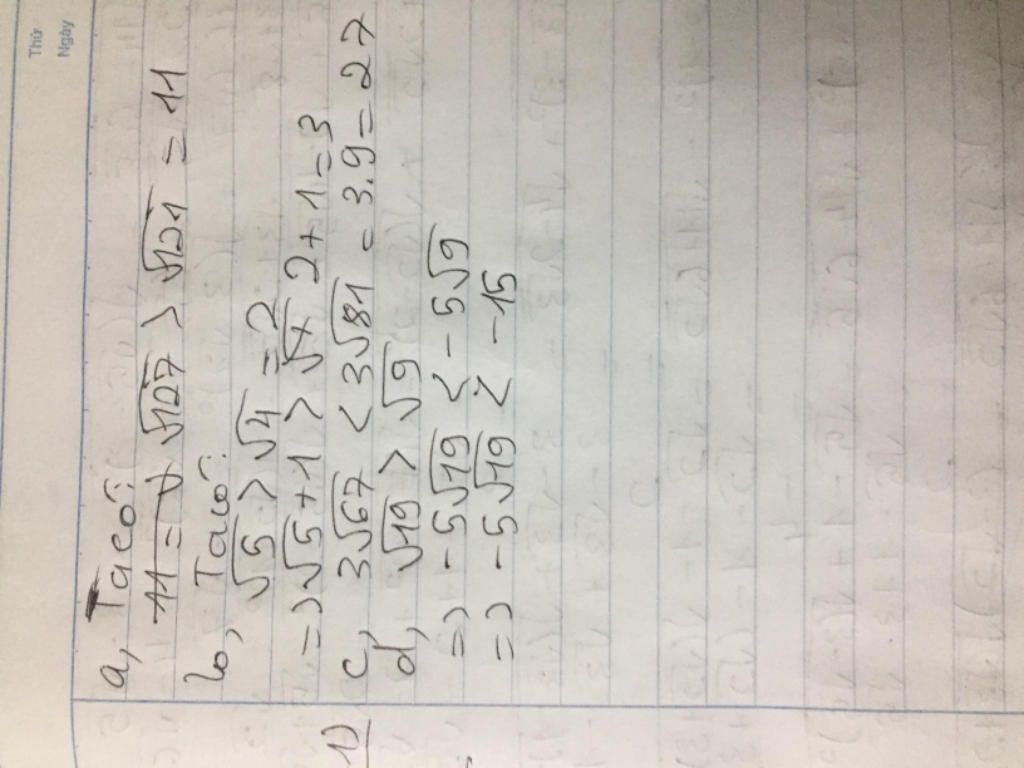 Thứ
Ngày
a, Ta có:
√127 > √121 = 11
b, Ta có:
√5 > √4 = 2
=> √5 + 1 > 2 + 1 = 3
c, 3√67 < 3√81 = 3.9 = 27
d, √19 > √9
=> -5√19 < -5√9
=> -5√19 < -15
1)